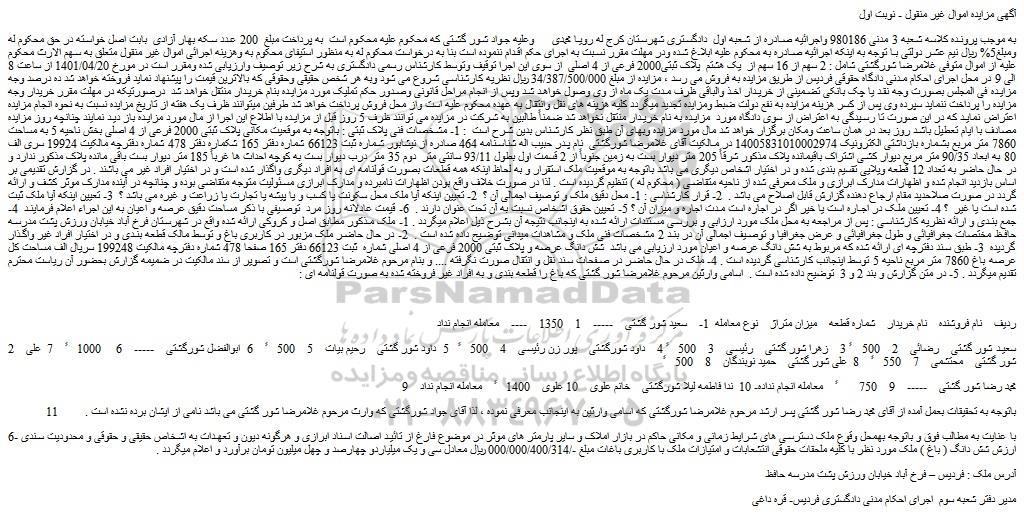 آگهی مزایده اموال غیر منقول - نوبت اول
به موجب پرونده کلاسه شعبه 3 مدنی 980186 واجرائیه صادره از شعبه اول دادگستری شهرستان کرج له رویا مجدی وعلیه جواد شور گشتی که محکوم علیه محکوم است به پرداخت مبلغ 200 عدد سکه بهار آزادی بابت اصل خواسته در حق محکوم له
ومبلغ5% ریال نیم عشر دولتی با توجه به اینکه اجرائیه صادره به محکوم علیه ابلاغ شده ودر مهلت مقرر نسبت به اجرای حکم اقدام ننموده است بنا به درخواست محکوم له به منظور استیفای محکوم به وهزینه اجرائی اموال غیر منقول متعلق به سهم الارث محکوم
علیه از اموال متوفی غلامرضا شورگشتی شامل : 2 سهم از 16 سهم از یک هشتم پلاک ثبتی2000 فرعی از 4 اصلی از سوی این اجرا توقیف وتوسط کارشناس رسمی دادگستری به شرح زیر توصیف وارزیابی شده ومقرر است در مورخ 1401/04/20 از ساعت 8
الی 9 در محل اجرای احکام مدنی دادگاه حقوقی فردیس از طریق مزایده به فروش می رسد ، مزایده از مبلغ 34/387/500/000ریال نظریه کارشناسی شروع می شود وبه هر شخص حقیقی وحقوقی که بالاترین قیمت را پیشنهاد نماید فروخته خواهد شد ده درصد وجه
مزایده فی المجلس بصورت وجه نقد یا چک بانکی تضمینی از خریدار اخذ والباقی ظرف مدت یک ماه از وی وصول خواهد شد وپس از انجام مراحل قانونی وصدور حکم تملیک مورد مزایده بنام خریدار منتقل خواهد شد درصورتیکه در مهلت مقرر خریدار وجه
مزایده را پرداخت ننماید سپرده وی پس از کسر هزینه مزایده به نفع دولت ضبط ومزایده تجدید میگردد کلیه هزینه های نقل وانتقال به عهده محکوم علیه است واز محل فروش پرداخت خواهد شد طرفین میتوانند ظرف یک هفته از تاریخ مزایده نسبت به نحوه انجام مزایده
اعتراض نماید که در این صورت تا رسیدگی به اعتراض از سوی دادگاه مورد مزایده به نام خریدار منتقل نخواهد شد ضمناً طالبین به شرکت در مزایده می توانند ظرف 5 روز قبل از مزایده با اطلاع این اجرا از مال مورد مزایده باز دید نمایند چنانچه روز مزایده
مصادف با ایام تعطیل باشد روز بعد در همان ساعت ومکان برگزار خواهد شد مال مورد مزایده وبهای آن طبق نظر کارشناس بدین شرح است : 1- مشخصات فنی پلاک ثبتی : باتوجه به موقعیت مکانی پلاک ثبتی 2000 فرعی از 4 اصلی بخش ناحیه 5 به مساحت
7860 متر مربع بشماره بازداشتی الکترونیک 14005831010002974 در مالکیت آقای غلامرضا شورگشتی نام پدر حبیب اله شناسنامه 464 صادره از نیشابور شماره ثبت 66123 شماره دفتر 165 شکماره دفتر 478 شماره دفترچه مالکیت 19924 سری الف
80 به ابعاد 90/35 متر مربع دیوار کشی اشتراک باقیمانده پلاک مذکور شرقاً 205 متر دیوار بست به زمین جنوباً از 2 قسمت اول بطول 93/11 سانتی متر دوم 35 متر درب دیوار بست به کوچه احداث ها غرباً 185 متر دیوار بست باقی مانده پلاک مذکور ندارد و
در حال حاضر به تعداد 12 قطعه ویلایی تقسیم بندی شده و در اختیار اشخاص دیگری می باشد باتوجه به موقعیت ملک استقرار و به لحاظ اینکه همه قطعات بصورت قولنامه ای به افراد دیگری واگذار شده است و در اختیار افراد غیر می باشند . در گزارش تقدیمی بر
اساس بازدید انجام شده و اظهارات مدارک ابرازی و ملک معرفی شده از ناحیه متقاضی ( محکوم له ) تنظیم گردیده است . لذا در صورت خلاف واقع بودن اظهارات نامبرده و مدارک ابرازی مسئولیت متوجه متقاضی بوده و چنانچه در آینده مدارک موثر کشف و ارائه
گردد در صورت صلاحدید مقام ارجاع دهنده گزارش قابل اصلاح می باشد . 2- قرار کارشناسی : 1- محل دقیق ملک و توصیف اجمالی آن ؟ 2- تعیین اینکه آیا ملک محل سکونت یا کسب و یا پیشه یا تجارت یا زراعت و غیره می باشد ؟ 3- تعیین اینکه آیا ملک ثبت
شده است یا غیر ؟ 4- تعیین ملک در اجاره است یا خیر اگر در اجاره است مدت اجاره و میزان آن ؟ 5- تعیین حقوق اشخاص نسبت به آن تحت عنوان دارند . 6- قیمت عادلانه روز مرد توصیفی با ذکر مساحت دقیق عرصه و اعیان به این اجراء اعلام فرمایند 4-
جمع بندی و ارائه نظریه کارشناسی : پس از مراجعه به محل ملک مورد ارزیابی و بررسی مستندات ارائه شده به اینجانب نتیجه آن بشرح ذیل اعلام میگردد . 1- ملک مذکور مطابق اصل و کروکی ارائه شده واقع در شهرستان فرخ آباد خیابان ورزش پشت مدرسه
حافظ مختصات جغرافیائی و طول جغرافیائی و عرض جغرافیا و توصیف اجمالی آن در بند 2 مشخصات فنی ملک و مشاهدات میدانی توضیح داده شده است . 2- در حال حاضر ملک مزبور در کاربری باغ و توسط مالک قطعه بندی و در اختیار افراد غیر واگذار
گردیده 3- طبق سند دفترچه ای ارائه شده که مربوط به شش دانگ عرصه و اعیان مورد ارزیابی می باشد شش دانگ عرصه و پلاک ثبتی 2000 فرعی از 4 اصلی شماره ثبت 66123 دفتر 165 صفحا 478 شماره دفترچه مالکیت 199248 سریال الف مساحت کل
عرصه باغ 7860 متر مربع ناحیه 5 توسط اینجانب کارشناسی گردیده است . 4- ملک در حال حاضر در صفحات سند نقل و انتقال صورت نگرفته .... و بنام مرحوم غلامرضا شورگشتی است و تصویر از سند مالکیت در ضمیمه گزارش بحضور آن ریاست محترم
تقدیم میگردد . 5- در متن گزارش و بند 2 و 3 توضیح داده شده است . اسامی وارثین مرحوم غلامرضا شور گشتی که باغ را قطعه بندی و به افراد غیر فروخته شده به صورت قولنامه ای :
ردیف نام فروشنده نام خریدار شماره قطعه میزان متراژ نوع معامله 1- سعید شور گشتی ----- 1 1350 ---- معامله انجام نداد
سعید شور گشتی رضائی 2 500 3 زهرا شور گشتی رئیسی 3 500 4 داود شورگشتی پور زن رئیسی 4 500 5 داود شور گشتی رحیم بیات 5 500 6 ابوالفضل شورگشتی ----- 6 1000 7 علی 2
شور گشتی محتشمی 7 550 8 علی شور گشتی حمید نوبندگان 8 500
محمد رضا شور گشتی ----- 9 750 معامله انجام نداده. 10 ندا فاطمه لیلا شورگشتی خانم علوی 10 علوی 1400 معامله انجام نداد 9
باتوجه به تحقیقات بعمل آمده از آقای محمد رضا شور گشتی پسر ارشد مرحوم غلامرضا شورگشتی که اسامی وارثین به اینجانب معرفی نموده ، لذا آقای جواد شورگشتی که وارث مرحوم غلامرضا شور گشتی می باشد نامی از ایشان برده نشده است . 11
با عنایت به مطالب فوق و باتوجه بهمحل وقوع ملک دسترسی های شرایط زمانی و مکانی حاکم در بازار املاک و سایر پارمتر های موثر در موضوع فارغ از تائید اصالت اسناد ابرازی و هرگونه دیون و تعهدات به اشخاص حقیقی و حقوقی و محدودیت سندی -6
ارزش شش دانگ ( باغ ) ملک مورد نظر با کلیه ملحقات حقوقی انتشعابات و امتیازات ملک با کاربری باغات مبلغ -/000/000/400/314 ریال معادل سی و یک میلیاردو چهارصد و چهل میلیون تومان برآورد و اعلام میگردد .
آدرس ملک : فردیس – فرخ آباد خیابان ورزش پشت مدرسه حافظ
مدیر دفتر شعبه سوم اجرای احکام مدنی دادگستری فردیس- قره داغی